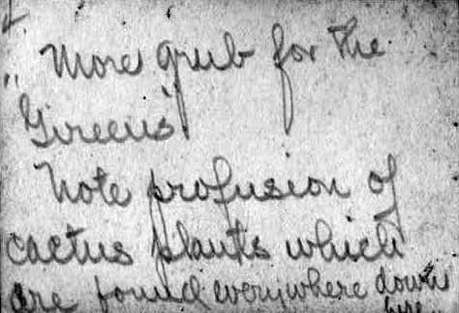 More grub for the
"Greens"
Note profusion of
cactus plants which
are found everywhere down
here